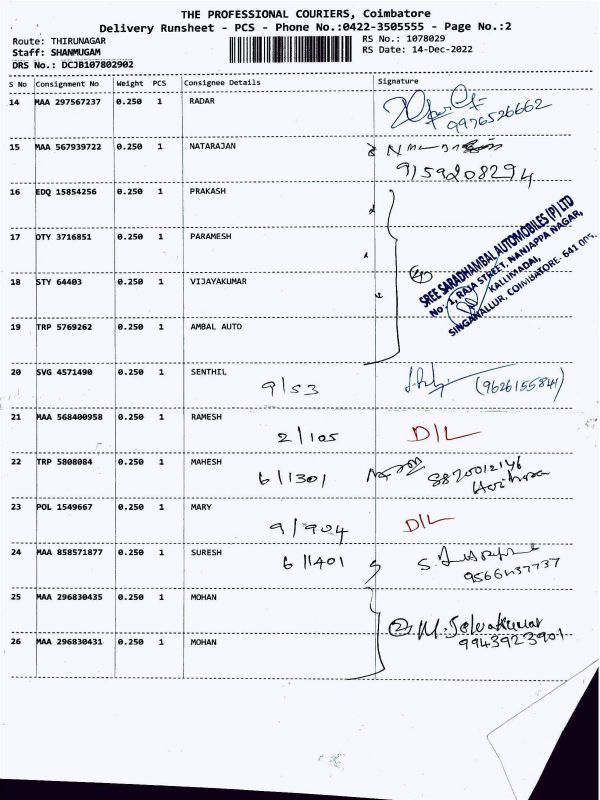 THE PROFESSIONAL COURIERS, Coimbatore
Delivery Runsheet - PCS - Phone No.:0422-3505555 - Page No.:2
Route: THIRUNAGAR
RS No.: 1078029
Staff: SHANMUGAM
RS Date: 14-Dec-2022
DRS No.: DCJB107802902
S No Consignment No Weight PCS Consignee Details Signature
14 MAA 297567237 0.250 1 RADAR
9976526662
15 MAA 567939722 0.250 1 NATARAJAN
9159208294
16 EDQ 15854256 0.250 1 PRAKASH
17 OTY 3716851 0.250 1 PARAMESH
18 STY 64403 0.250 1 VIJAYAKUMAR
4
SREE SARADHAMBAL AUTOMOBILES (P) LTD
No: 1, RAJA STREET, NANJAPPA NAGAR,
KALLIMADAI,
SINGANALLUR, COIMBATORE- 641 005.
19 TRP 5769262 0.250 1 AMBAL AUTO
20 SVG 4571490 0.250 1 SENTHIL
9/53 (9626155841)
21 MAA 568400958 0.250 1 RAMESH
2/105 D/L
22 TRP 5808084 0.250 1 MAHESH
6/1301 8870012146
23 POL 1549667 0.250 1 MARY
9/904 D/L
24 MAA 858571877 0.250 1 SURESH
6/1401
9566437737
25 MAA 296830435 0.250 1 MOHAN
2 M. Selvakumar
9943923901
26 MAA 296830431 0.250 1 MOHAN